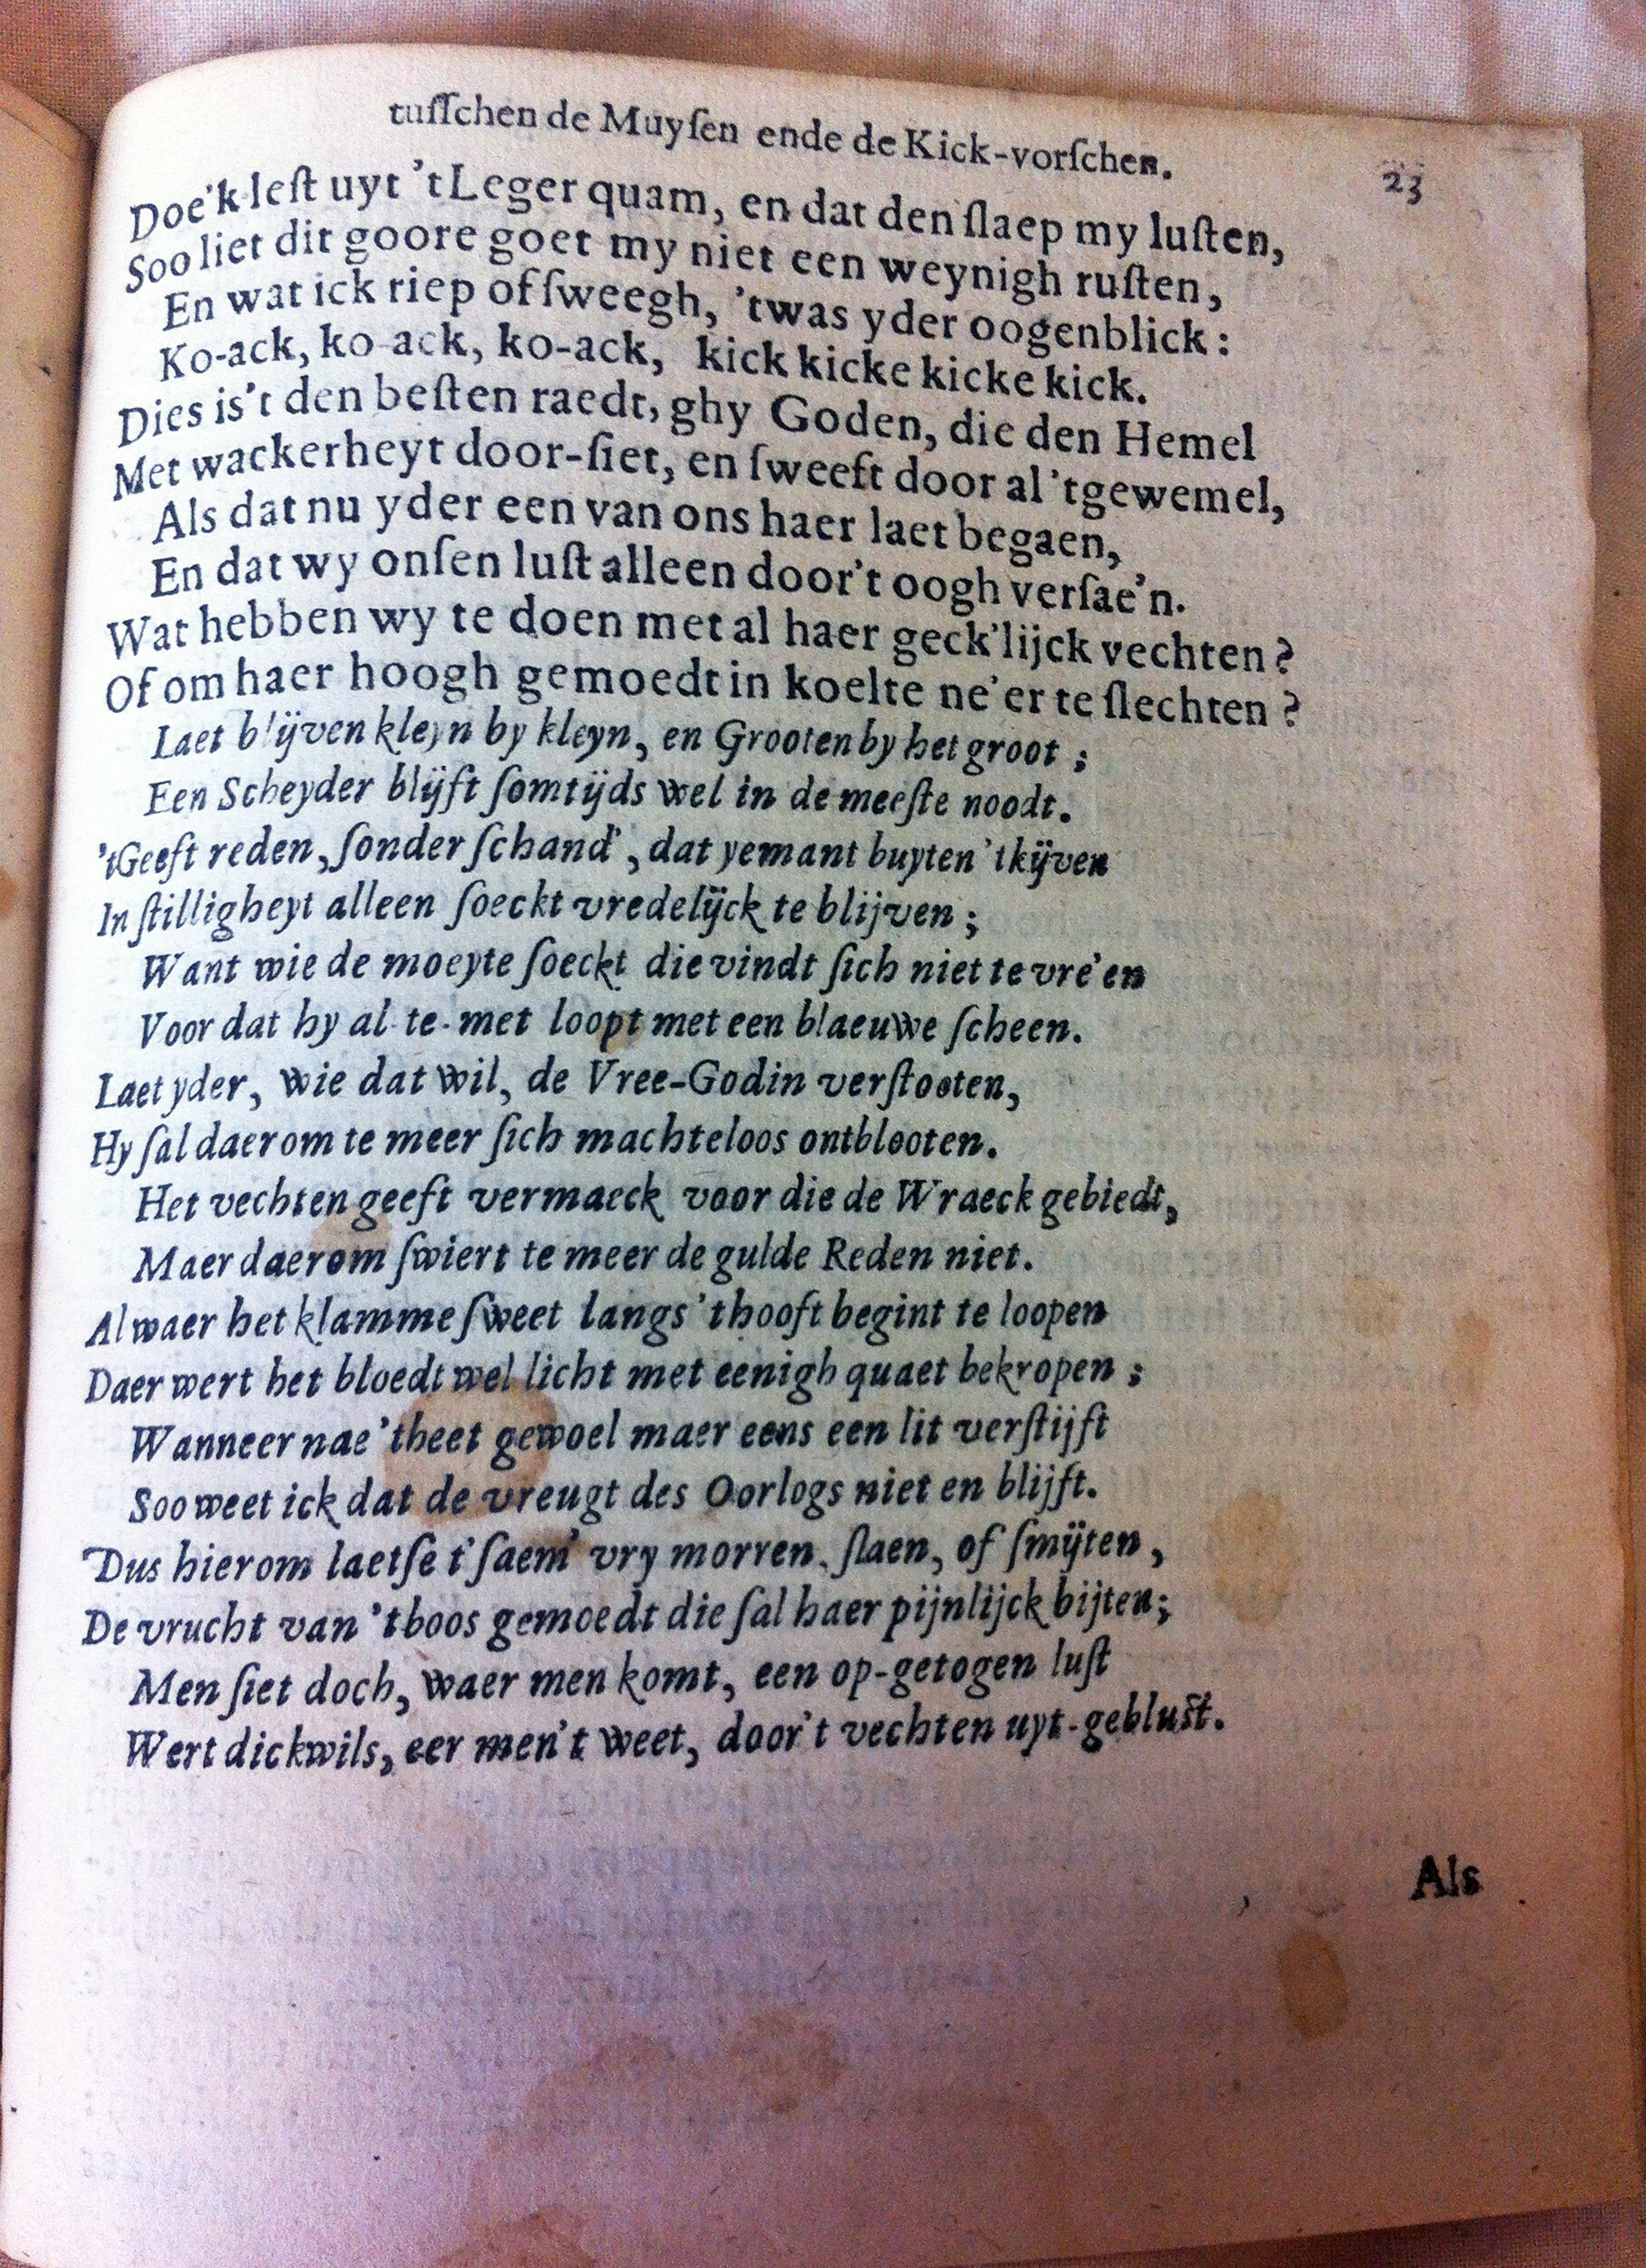 tuſſchen de Muyſen ende de Kick-vorſchen. 23
Doe'k leſt uyt 't Leger quam, en dat den ſlaep my luſten,
Soo liet dit goore goet my niet een weynigh ruſten,
En wat ick riep of ſweegh, 'twas yder oogenblick:
Ko-ack, ko-ack, ko-ack, kick kicke kicke kick.
Dies is't den beſten raedt, ghy Goden, die den Hemel
Met wackerheyt door-ſiet, en ſweeft door al 'tgewemel,
Als dat nu yder een van ons haer laet begaen,
En dat wy onſen luſt alleen door't oogh verſae'n.
Wat hebben wy te doen met al haer geck'lijck vechten?
Of om haer hoogh gemoedt in koelte ne'er te ſlechten?
Laet blijven kleyn by kleyn, en Grooten by het groot;
Een Scheyder blijft ſomtijds wel in de meeſte noodt.
'tGeeft reden, ſonder ſchand', dat yemant buyten 'tkijven
In ſtilligheyt alleen ſoeckt vredelijck te blijven;
Want wie de moeyte ſoeckt die vindt ſich niet te vre'en
Voor dat hy al-te-met loopt met een blaeuwe ſcheen.
Laet yder, wie dat wil, de Vree-Godin verſtooten,
Hy ſal daerom te meer ſich machteloos ontblooten.
Het vechten geeft vermaeck voor die de Wraeck gebiedt,
Maer daerom ſwiert te meer de gulde Reden niet.
Al waer het klamme ſweet langs 'thooft begint te loopen
Daer wert het bloedt wel licht met eenigh quaet bekropen;
Wanneer nae 'theet gewoel maer eens een lit verſtijft
Soo weet ick dat de vreugt des Oorlogs niet en blijft.
Dus hierom laetſe t'ſaem' vry morren, ſlaen, of ſmijten,
De vrucht van 'tboos gemoedt die ſal haer pijnlijck bijten;
Men ſiet doch, waer men komt, een op-getogen luſt
Wert dickwils, eer men't weet, door't vechten uyt-gebluſt.
Als